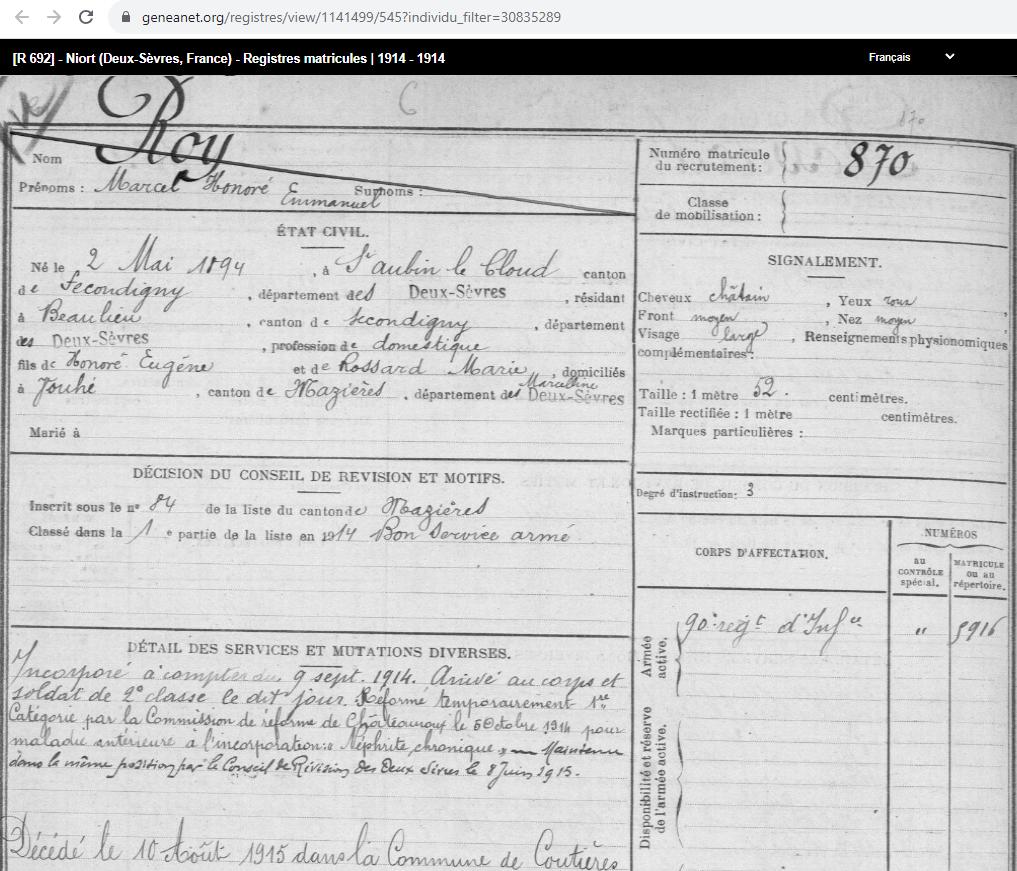 geneanet.org/registres/view/1141499/545?individu_filter=30835289
[R 692] - Niort (Deux-Sèvres, France) - Registres matricules | 1914 - 1914
Français
C
870
Nom Roy
Prénoms : Marcel Honoré Emmanuel Surnoms :
Numéro matricule du recrutement : 870
Classe de mobilisation :
ÉTAT CIVIL.
Né le 2 Mai 1894, à St aubin le Cloud canton
de Secondigny, département des Deux-Sèvres, résidant
à Beaulieu, canton de Secondigny, département
des Deux-Sèvres, profession de domestique
fils de Honoré Eugène et de Rossard Marie Marcelline, domiciliés
à Jouhé, canton de Mazières, département des Deux-Sèvres
Marié à
SIGNALEMENT.
Cheveux châtain, Yeux roux,
Front moyen, Nez moyen,
Visage large, Renseignements physionomiques
complémentaires :
Taille : 1 mètre 52. centimètres.
Taille rectifiée : 1 mètre centimètres.
Marques particulières :
DÉCISION DU CONSEIL DE REVISION ET MOTIFS.
Inscrit sous le no 84 de la liste du canton de Mazières
Classé dans la 1 e partie de la liste en 1914 Bon Service armé
Degré d'instruction : 3
CORPS D'AFFECTATION.
NUMÉROS
AU CONTRÔLE spécial.
MATRICULE ou au répertoire.
Armée active.
90e regt d'Infie " 5916
Disponibilité et réserve de l'armée active.
DÉTAIL DES SERVICES ET MUTATIONS DIVERSES.
Incorporé à compter du 9 sept. 1914. Arrivé au corps et
soldat de 2e classe le dit jour. Réformé temporairement 1re
Catégorie par la Commission de réforme de Châteauroux le 5 Octobre 1914 pour
maladie antérieure à l'incorporation : « Néphrite chronique » Maintenu
dans la même position par le Conseil de Révision des Deux Sèvres le 8 Juin 1915.
Décédé le 10 Août 1915 dans la Commune de Coutières